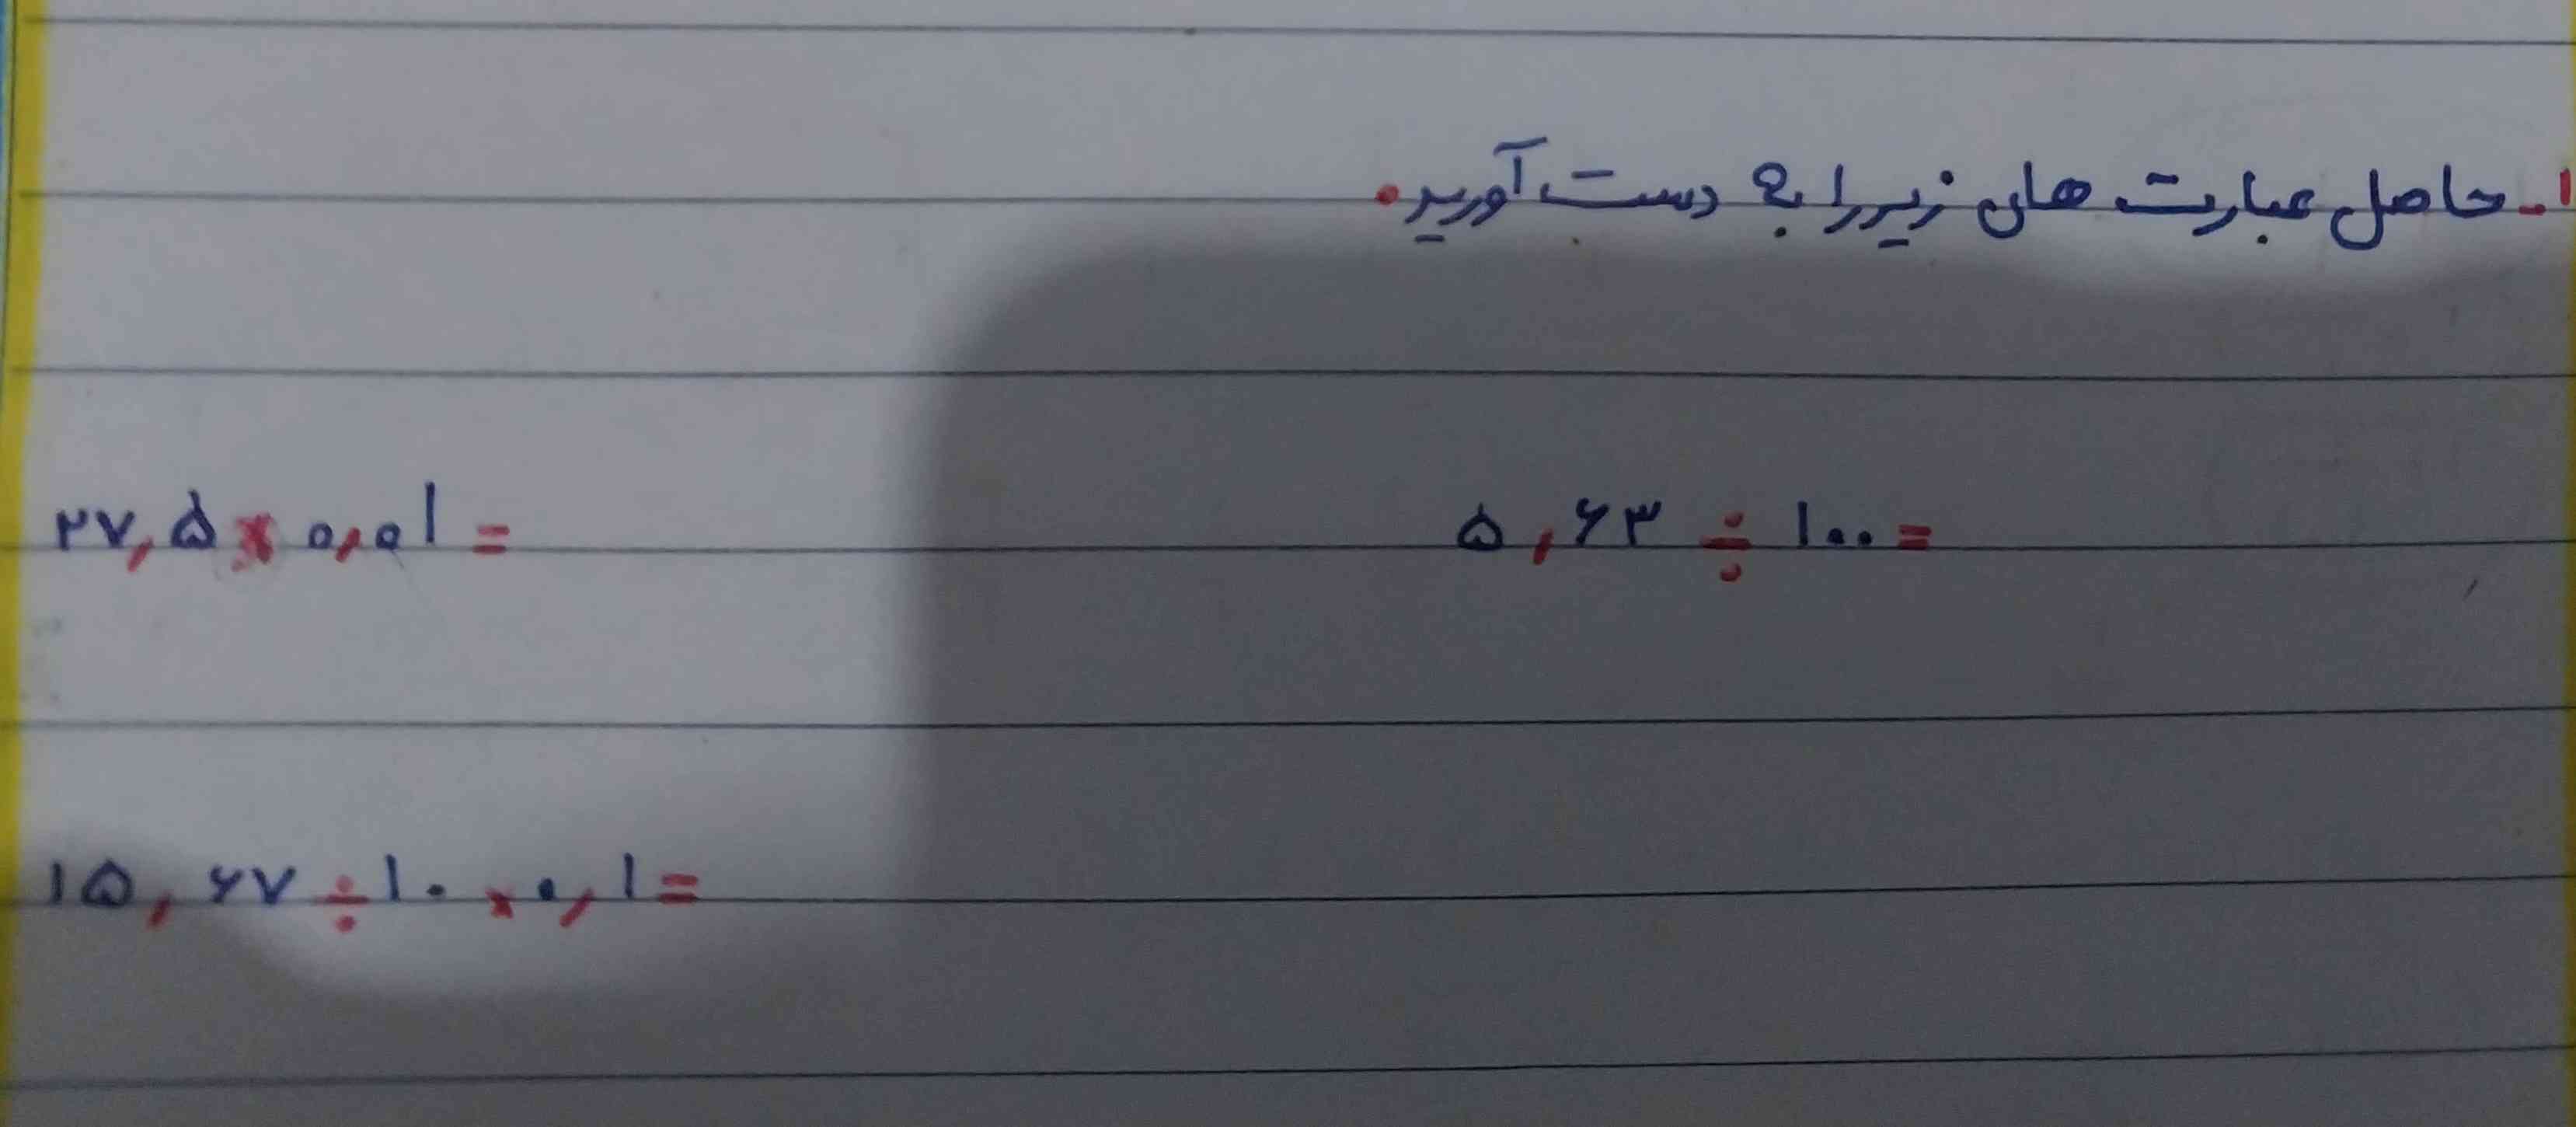 ۱- حاصل عبارت های زیر را به دست آورید.
۲۷,۵ × ۰,۰۱ =
۵,۶۳ ÷ ۱۰۰ =
۱۵,۶۷ ÷ ۱۰ × ۰,۱ =